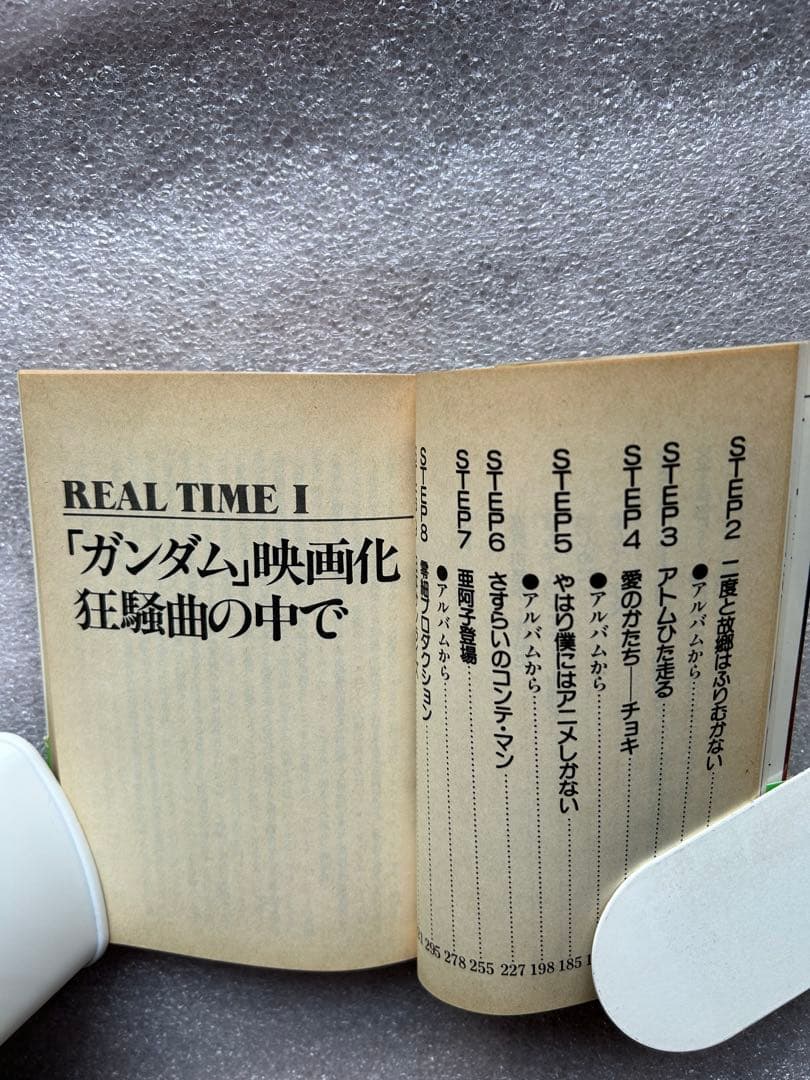 STEP2 二度と故郷はふりむかない
●アルバムから
STEP3 アトムひた走る
STEP4 愛のかたち——チョキ
●アルバムから
STEP5 やはり僕にはアニメしかない 185
●アルバムから 198
STEP6 さすらいのコンテ・マン 227
STEP7 亜阿子登場 255
●アルバムから 278
STEP8 零細プロダクション 295
REAL TIME I
「ガンダム」映画化
狂騒曲の中で